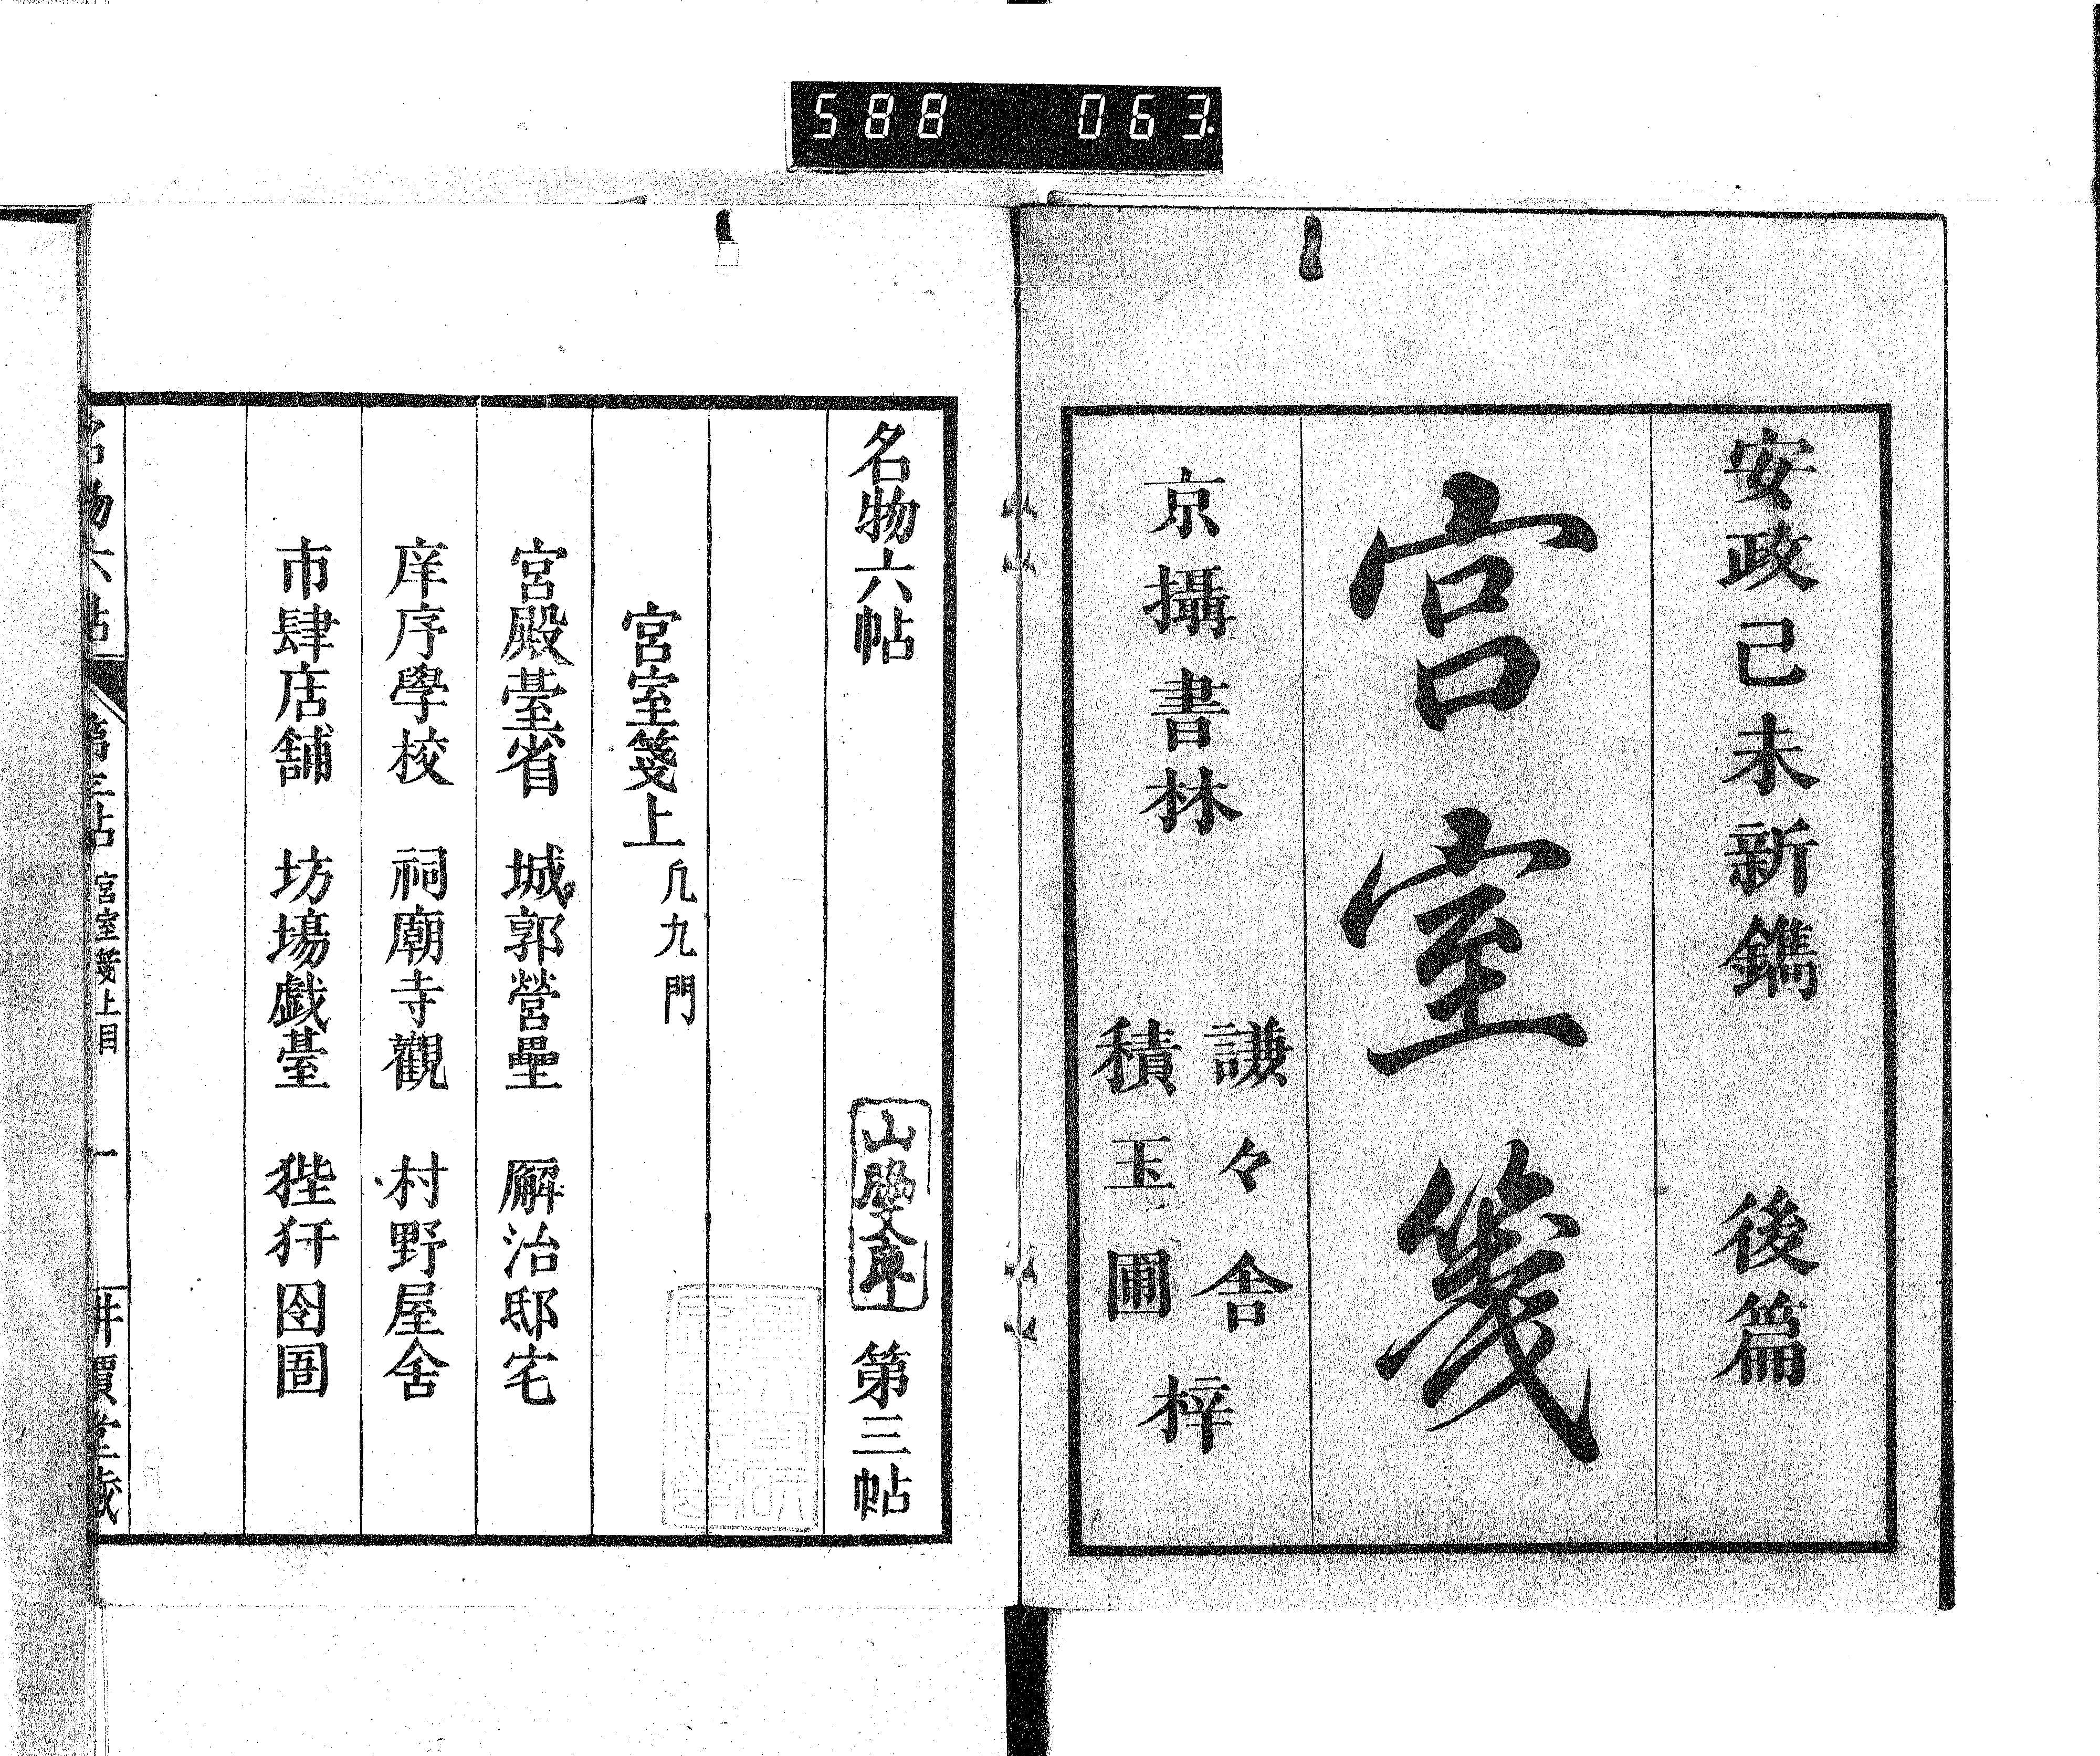 588 063
安政己未新鐫 後篇
宮室箋
京攝書林
謙々舎
積玉圃
梓
名物六帖 第三帖
山脇文庫
宮室箋上 凢九門
宮殿臺省 城郭營壘 廨治邸宅
庠序學校 祠廟寺觀 村野屋舍
市肆店舖 坊場戯臺 狴犴囹圄
名物六帖 第三帖 宮室箋上目 一